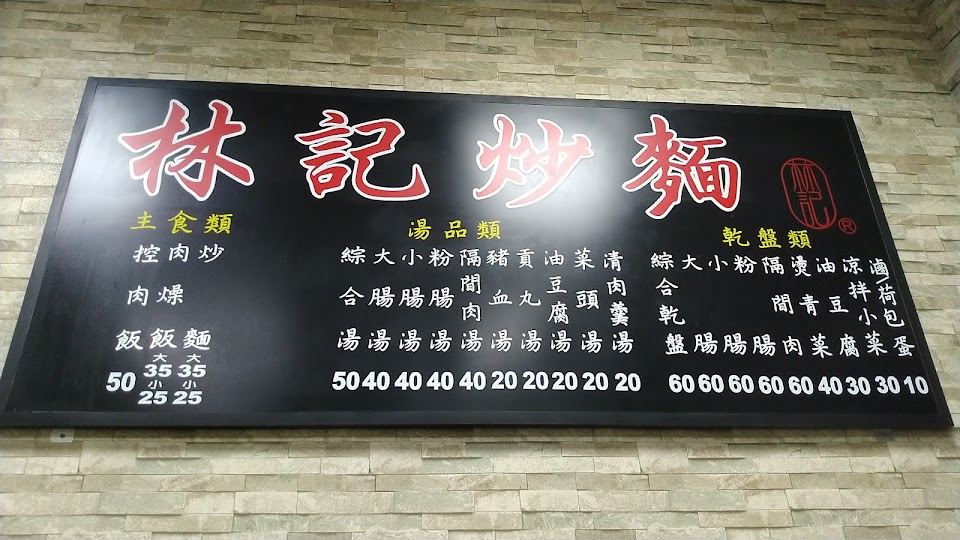 林記炒麵
林記
®
主食類
控肉飯 50
肉燥飯 大35 小25
炒麵 大35 小25
湯品類
綜合湯 50
大腸湯 40
小腸湯 40
粉腸湯 40
隔間肉湯 40
豬血湯 20
貢丸湯 20
油豆腐湯 20
菜頭湯 20
清肉羹湯 20
乾盤類
綜合乾盤 60
大腸 60
小腸 60
粉腸 60
隔間肉 60
燙青菜 40
油豆腐 30
涼拌小菜 30
滷/荷包蛋 10